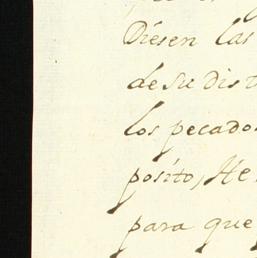 Diesen las
de su dis
los pecado
posito, He
para que